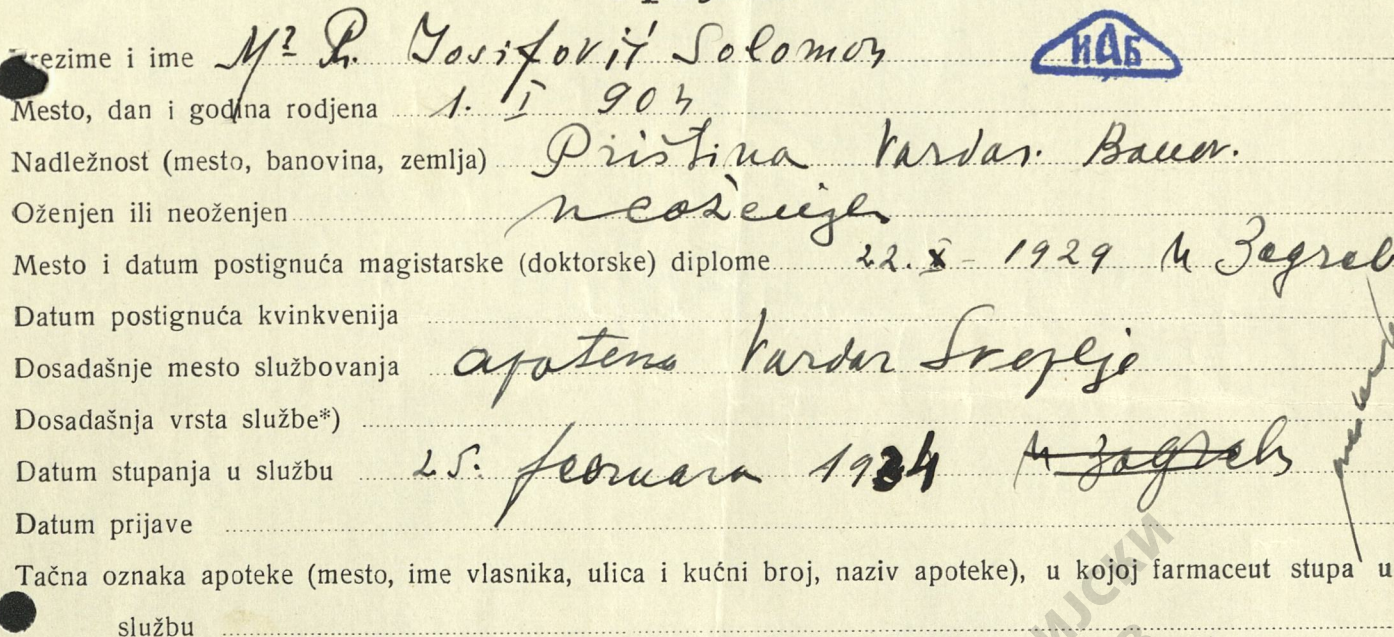 Prezime i ime Mr Ph. Josifović Solomon
ИАБ
Mesto, dan i godina rodjena 1. I 904
Nadležnost (mesto, banovina, zemlja) Priština Vardar. Banov.
Oženjen ili neoženjen neoženjen
Mesto i datum postignuća magistarske (doktorske) diplome 22. X – 1929 u Zagreb
Datum postignuća kvinkvenija
Dosadašnje mesto službovanja apoteka Vardar Skoplje
Dosadašnja vrsta službe*)
Datum stupanja u službu 25. februara 1934 u Zagreb
Datum prijave
Tačna oznaka apoteke (mesto, ime vlasnika, ulica i kućni broj, naziv apoteke), u kojoj farmaceut stupa u
službu
ИЈСКИ